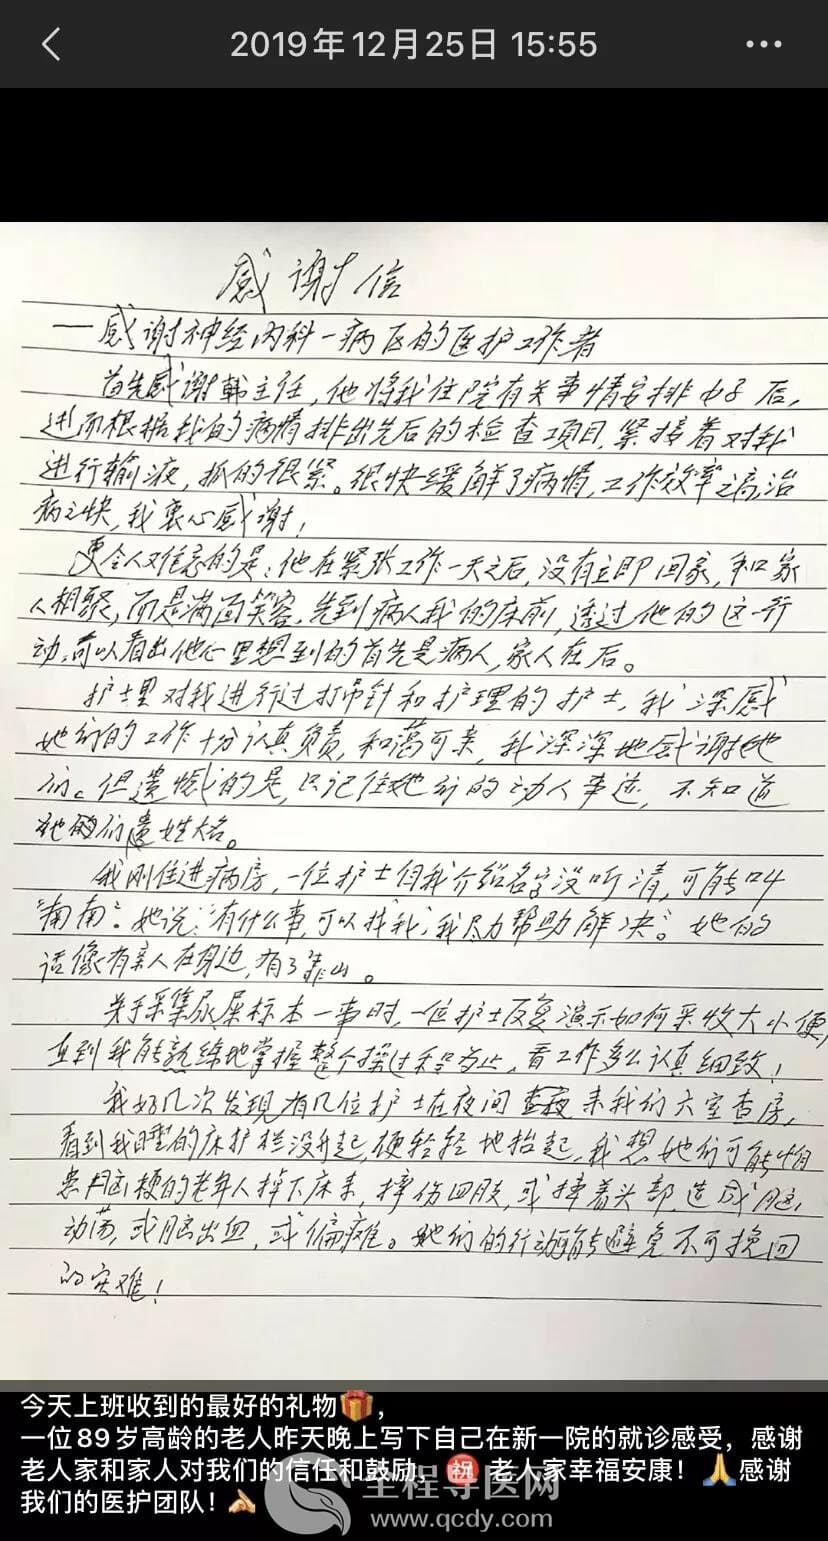 2019年12月25日 15:55
感谢信
一感谢神经内科一病区的医护工作者
首先感谢韩主任，他将我住院有关事情安排好后，
进而根据我的病情排出先后的检查项目，紧接着对我
进行输液，抓的很紧。很快缓解了病情，工作效率之高，治
病之快，我衷心感谢！
更令人难忘的是：他在紧张工作一天之后，没有立即回家，和家
人相聚，而是满面笑容，先到病人我的床前，透过他的这一行
动，可以看出他心里想到的首先是病人，家人在后。
护士里对我进行过打吊针和护理的护士，我深感
她们的工作十分认真负责，和蔼可亲，我深深地感谢她
们。但遗憾的是，只记住她们的动人事迹，不知道
她们姓大名。
我刚住进病房，一位护士但我介绍名字没听清，可能叫
“南南”。她说：“有什么事，可以找我，我尽力帮助解决”。她的
话像有亲人在身边，有了靠山。
关于采集尿屎标本一事时，一位护士反复演示如何采收大小便，
直到我能熟练地掌握整个操过程为止，看工作多么认真细致！
我好几次发现有几位护士在夜间来我们六室查房，
看到我睡的床护栏没升起，便轻轻地抬起，我想她们可能怕
患脑梗的老年人掉下床来，摔伤四肢，或摔着头部，造成脑
动荡，或脑出血，或偏瘫。她们的行动能避免不可挽回
的灾难！
今天上班收到的最好的礼物🎁，
一位89岁高龄的老人昨天晚上写下自己在新一院的就诊感受，感谢
老人家和家人对我们的信任和鼓励，㊗️老人家幸福安康！🙏感谢
我们的医护团队！💪
全程导医网
www.qcdy.com